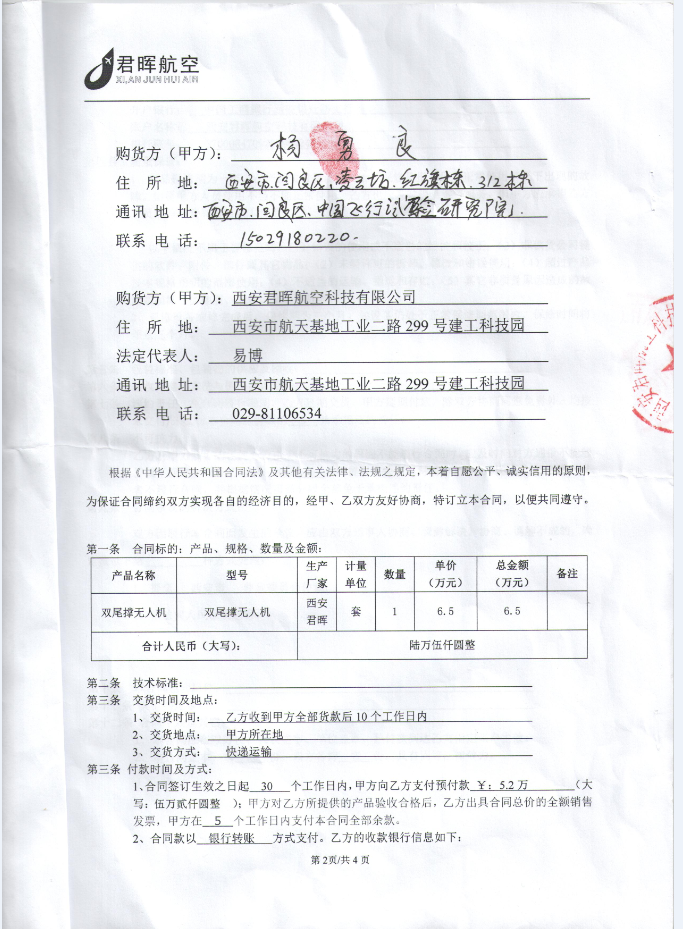 君晖航空
XI,AN JUN HUI AIR
购货方（甲方）： 杨勇良
住 所 地： 西安市.闫良区,凌云坊.红旗栋.312栋
通讯 地址： 西安市.闫良区、中国飞行试验研究院」.
联系 电 话： 15029180220.
购货方（甲方）：西安君晖航空科技有限公司
住 所 地： 西安市航天基地工业二路 299 号建工科技园
法定代表人： 易博
通讯 地 址： 西安市航天基地工业二路 299 号建工科技园
联系 电 话： 029-81106534
根据《中华人民共和国合同法》及其他有关法律、法规之规定，本着自愿公平、诚实信用的原则，
为保证合同缔约双方实现各自的经济目的，经甲、乙双方友好协商，特订立本合同，以便共同遵守。
第一条 合同标的：产品、规格、数量及金额：
产品名称 型号 生产厂家 计量单位 数量 单价（万元） 总金额（万元） 备注
双尾撑无人机 双尾撑无人机 西安君晖 套 1 6.5 6.5
合计人民币（大写）： 陆万伍仟圆整
第二条 技术标准：
第三条 交货时间及地点：
1、交货时间： 乙方收到甲方全部货款后 10 个工作日内
2、交货地点： 甲方所在地
3、交货方式： 快递运输
第三条 付款时间及方式：
1.合同签订生效之日起 30 个工作日内,甲方向乙方支付预付款 ￥：5.2 万 （大
写：伍万贰仟圆整 ）；甲方对乙方所提供的产品验收合格后，乙方出具合同总价的全额销售
发票，甲方在 5 个工作日内支付本合同全部余款。
2、合同款以 银行转账 方式支付。乙方的收款银行信息如下：
第 2页/共 4 页